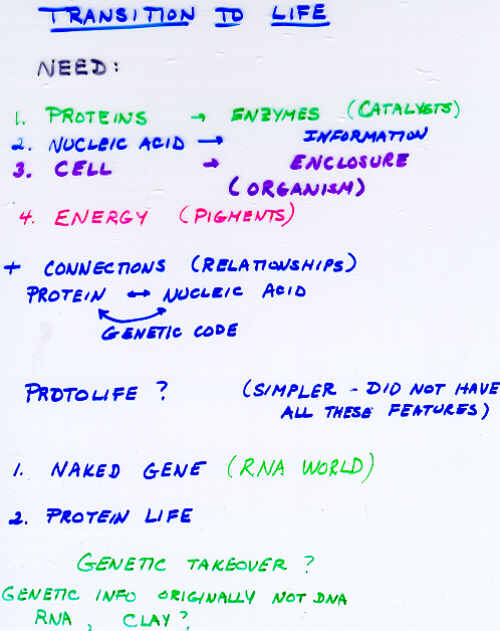 TRANSITION TO LIFE
NEED:
1. PROTEINS → ENZYMES (CATALYSTS)
2. NUCLEIC ACID → INFORMATION
3. CELL → ENCLOSURE
(ORGANISM)
4. ENERGY (PIGMENTS)
+ CONNECTIONS (RELATIONSHIPS)
PROTEIN ↔ NUCLEIC ACID
GENETIC CODE
PROTOLIFE ? (SIMPLER - DID NOT HAVE
ALL THESE FEATURES)
1. NAKED GENE (RNA WORLD)
2. PROTEIN LIFE
GENETIC TAKEOVER ?
GENETIC INFO ORIGINALLY NOT DNA
RNA, CLAY?